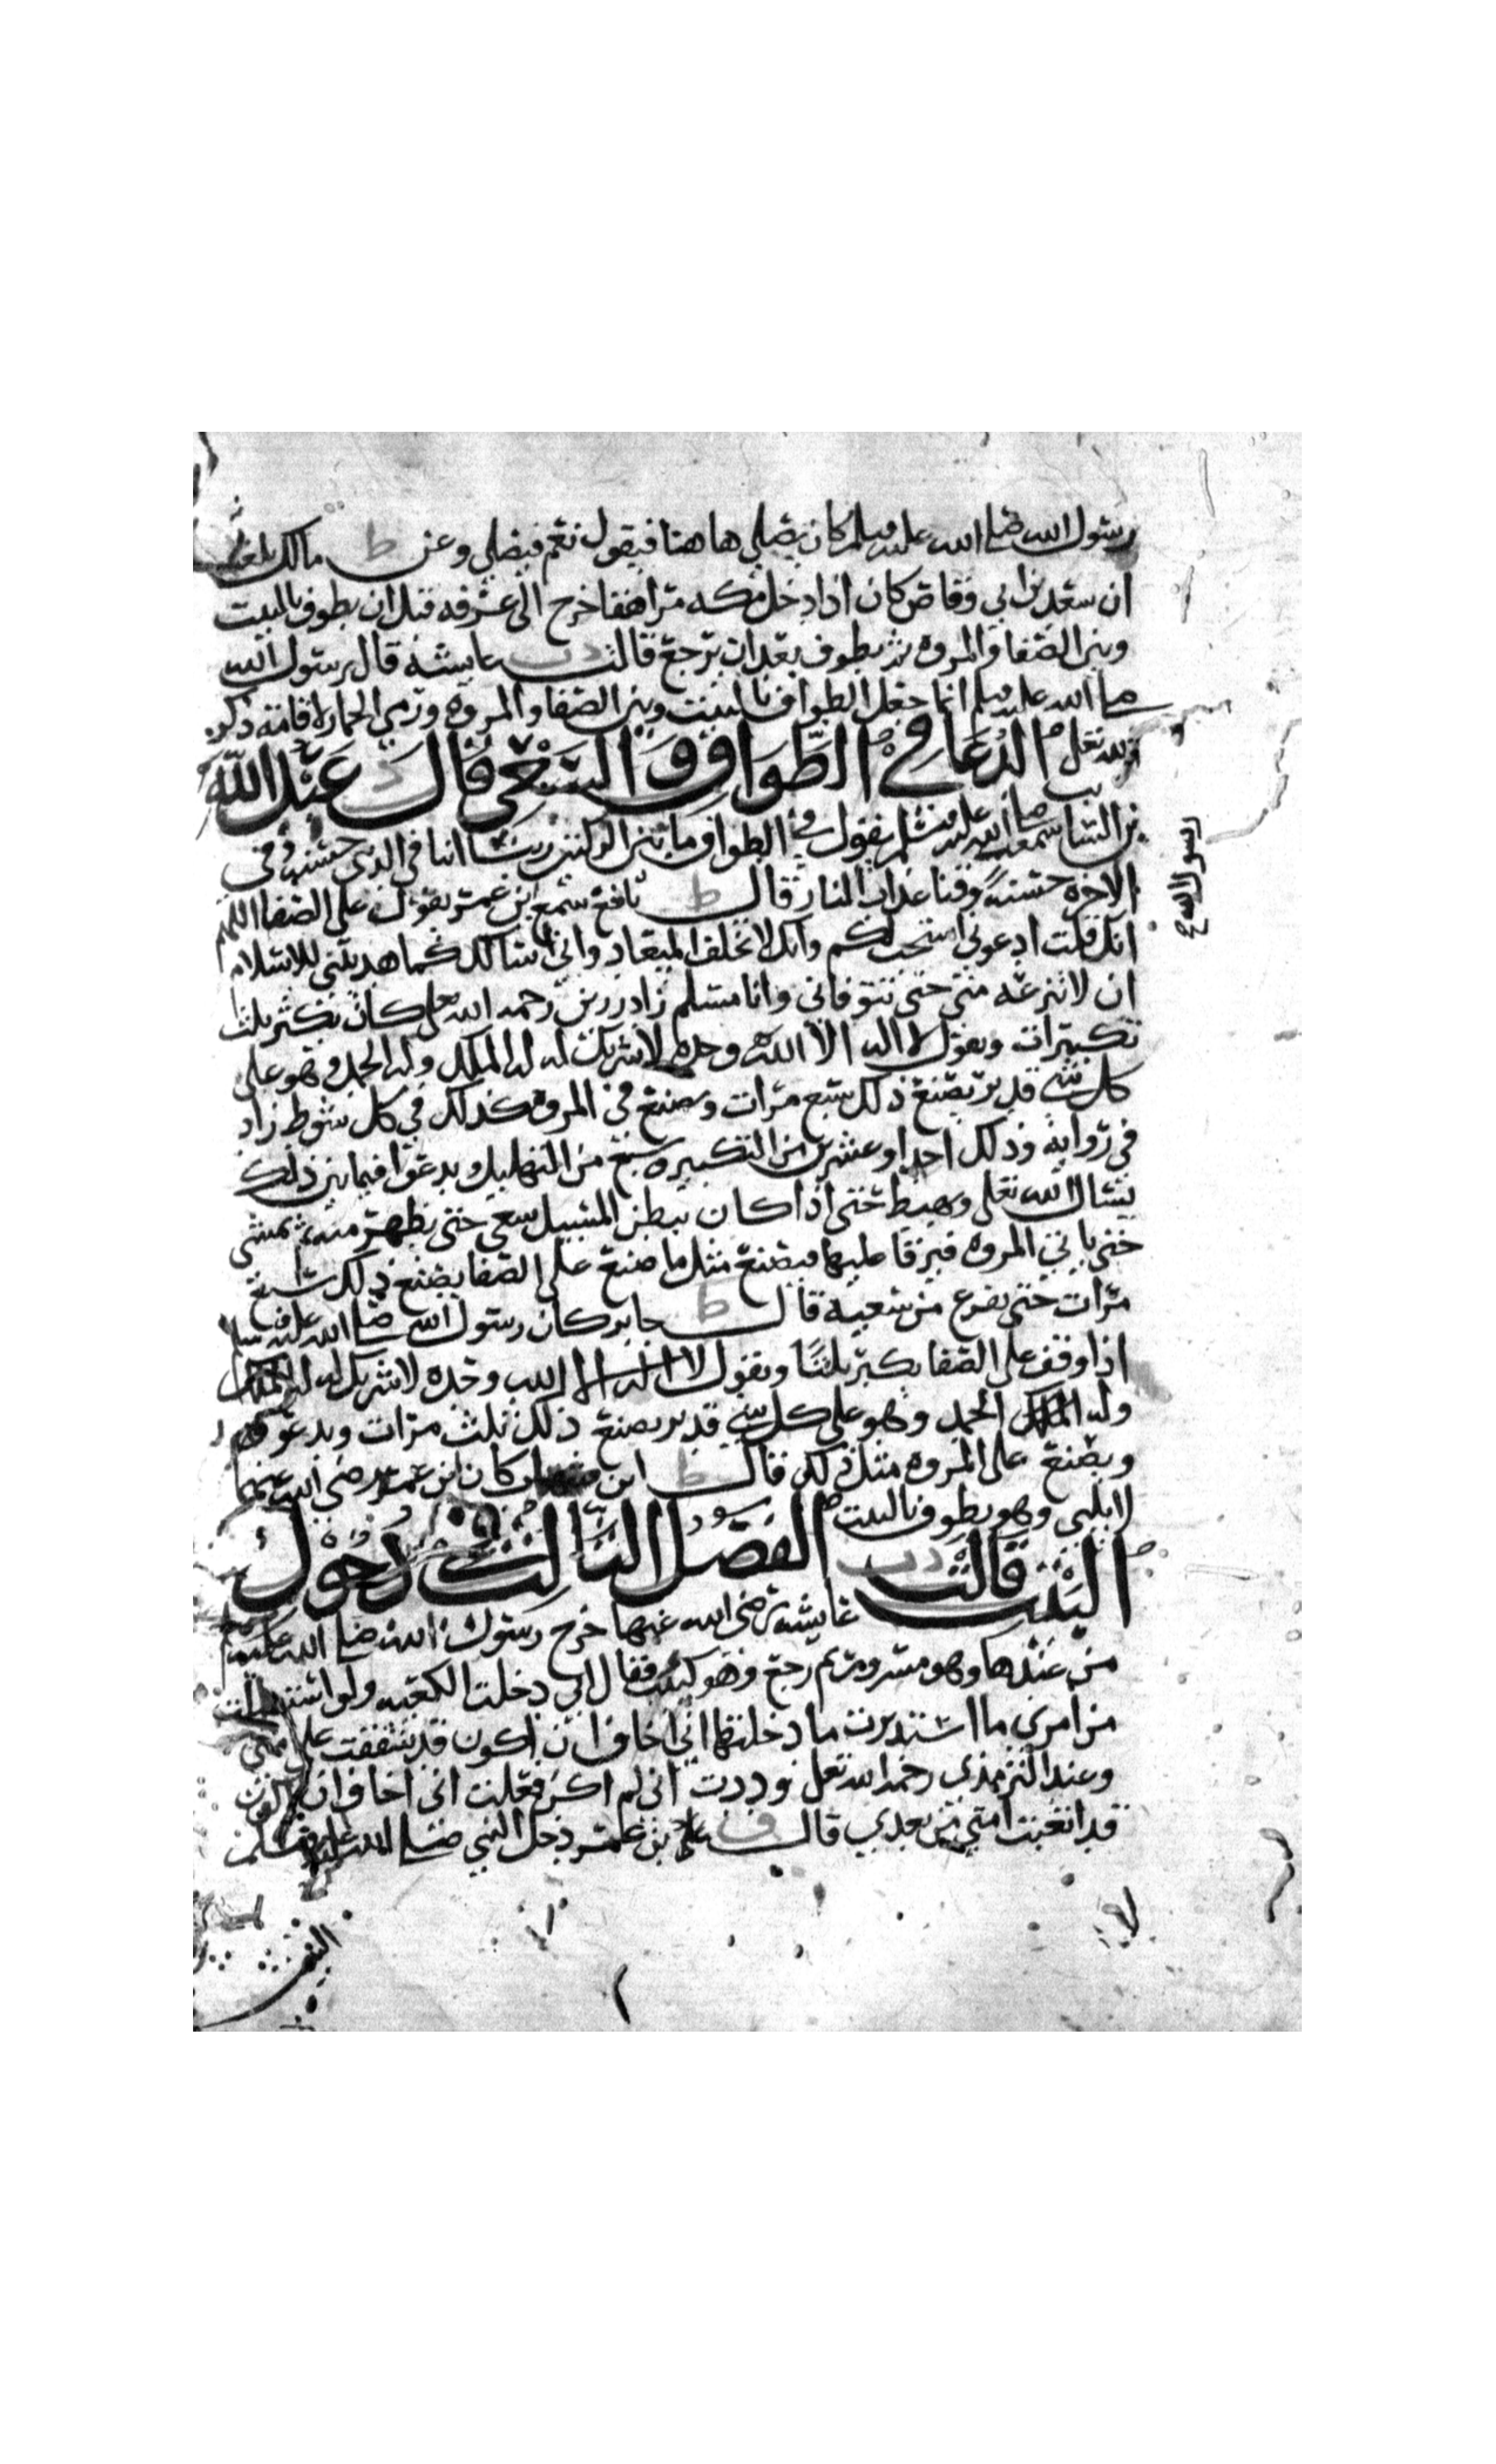 رسول الله صلى الله عليه وسلم كان يصلي هاهنا فيقول نعم فيصلي وعن ط مالك بلغه
ان سعد بن ابي وقاص كان اذا دخل مكه مراهقا خرج الى عرفه قبل ان يطوف بالبيت
وبين الصفا والمروه ثم يطوف بعد ان يرجع قالت د ت عايشه قال رسول الله
صلى الله عليه وسلم انما جعل الطواف بالبيت وبين الصفا والمروه ورمي الجمار لاقامه ذكر
الله تعلى الدعا في الطواف والسعي قال د عبد الله
بن السايب سمعت رسول الله صلى الله عليه وسلم يقول في الطواف ما بين الركنين ربنا اتنا في الدنيا حسنه وفي
الاخره حسنة وقنا عذاب النار قال ط نافع سمع ابن عمر يقول على الصفا اللهم
انك قلت ادعوني استجب لكم وانك لا تخلف الميعاد واني اسالك كما هديتني للاسلام
ان لا تنزعه مني حتى تتوفاني وانا مسلم زاد رزين رحمه الله تعلى كان يكبر ثلث
تكبيرات ويقول لا اله الا الله وحده لا شريك له له الملك وله الحمد وهو على
كل شي قدير يصنع ذلك سبع مرات ويصنع في المروة كذلك في كل شوط زاد
في رواية وذلك احد او عشرين من التكبير وسبع من التهليل ويدعوا فيما بين ذلك
يسال الله تعلى وهبط حتى اذا كان ببطن المسيل سعى حتى يظهر منه ثم يمشي
حتى ياتي المروه فيرقا عليها فيصنع مثل ما صنع على الصفا يصنع ذلك سبع
مرات حتى يفرع من سعيه قال ط جابر كان رسول الله صلى الله عليه وسلم
اذا وقف على الصفا يكبر ثلثا ويقول لا اله الا الله وحده لا شريك له له الملك
وله الحمد وهو على كل شي قدير يصنع ذلك ثلث مرات ويدعو
ويصنع على المروه مثل ذلك قال ط ابن شهاب كان ابن عمر رضي الله عنهما
لا يلبي وهو يطوف بالبيت الفصل الثالث في دخول
البيت قالت د ت عايشه رضي الله عنها خرج رسول الله صلى الله عليه وسلم
من عندها وهو مسرور ثم رجع وهو كئيب فقال اني دخلت الكعبه ولو استقبلت
من امري ما استدبرت ما دخلتها اني اخاف ان اكون قد شققت على امتي
وعند الترمذي رحمه الله تعلى وددت اني لم اكن فعلت اني اخاف ان اكون
قد اتعبت امتي من بعدي قال ف بن عمر دخل النبي صلى الله عليه وسلم